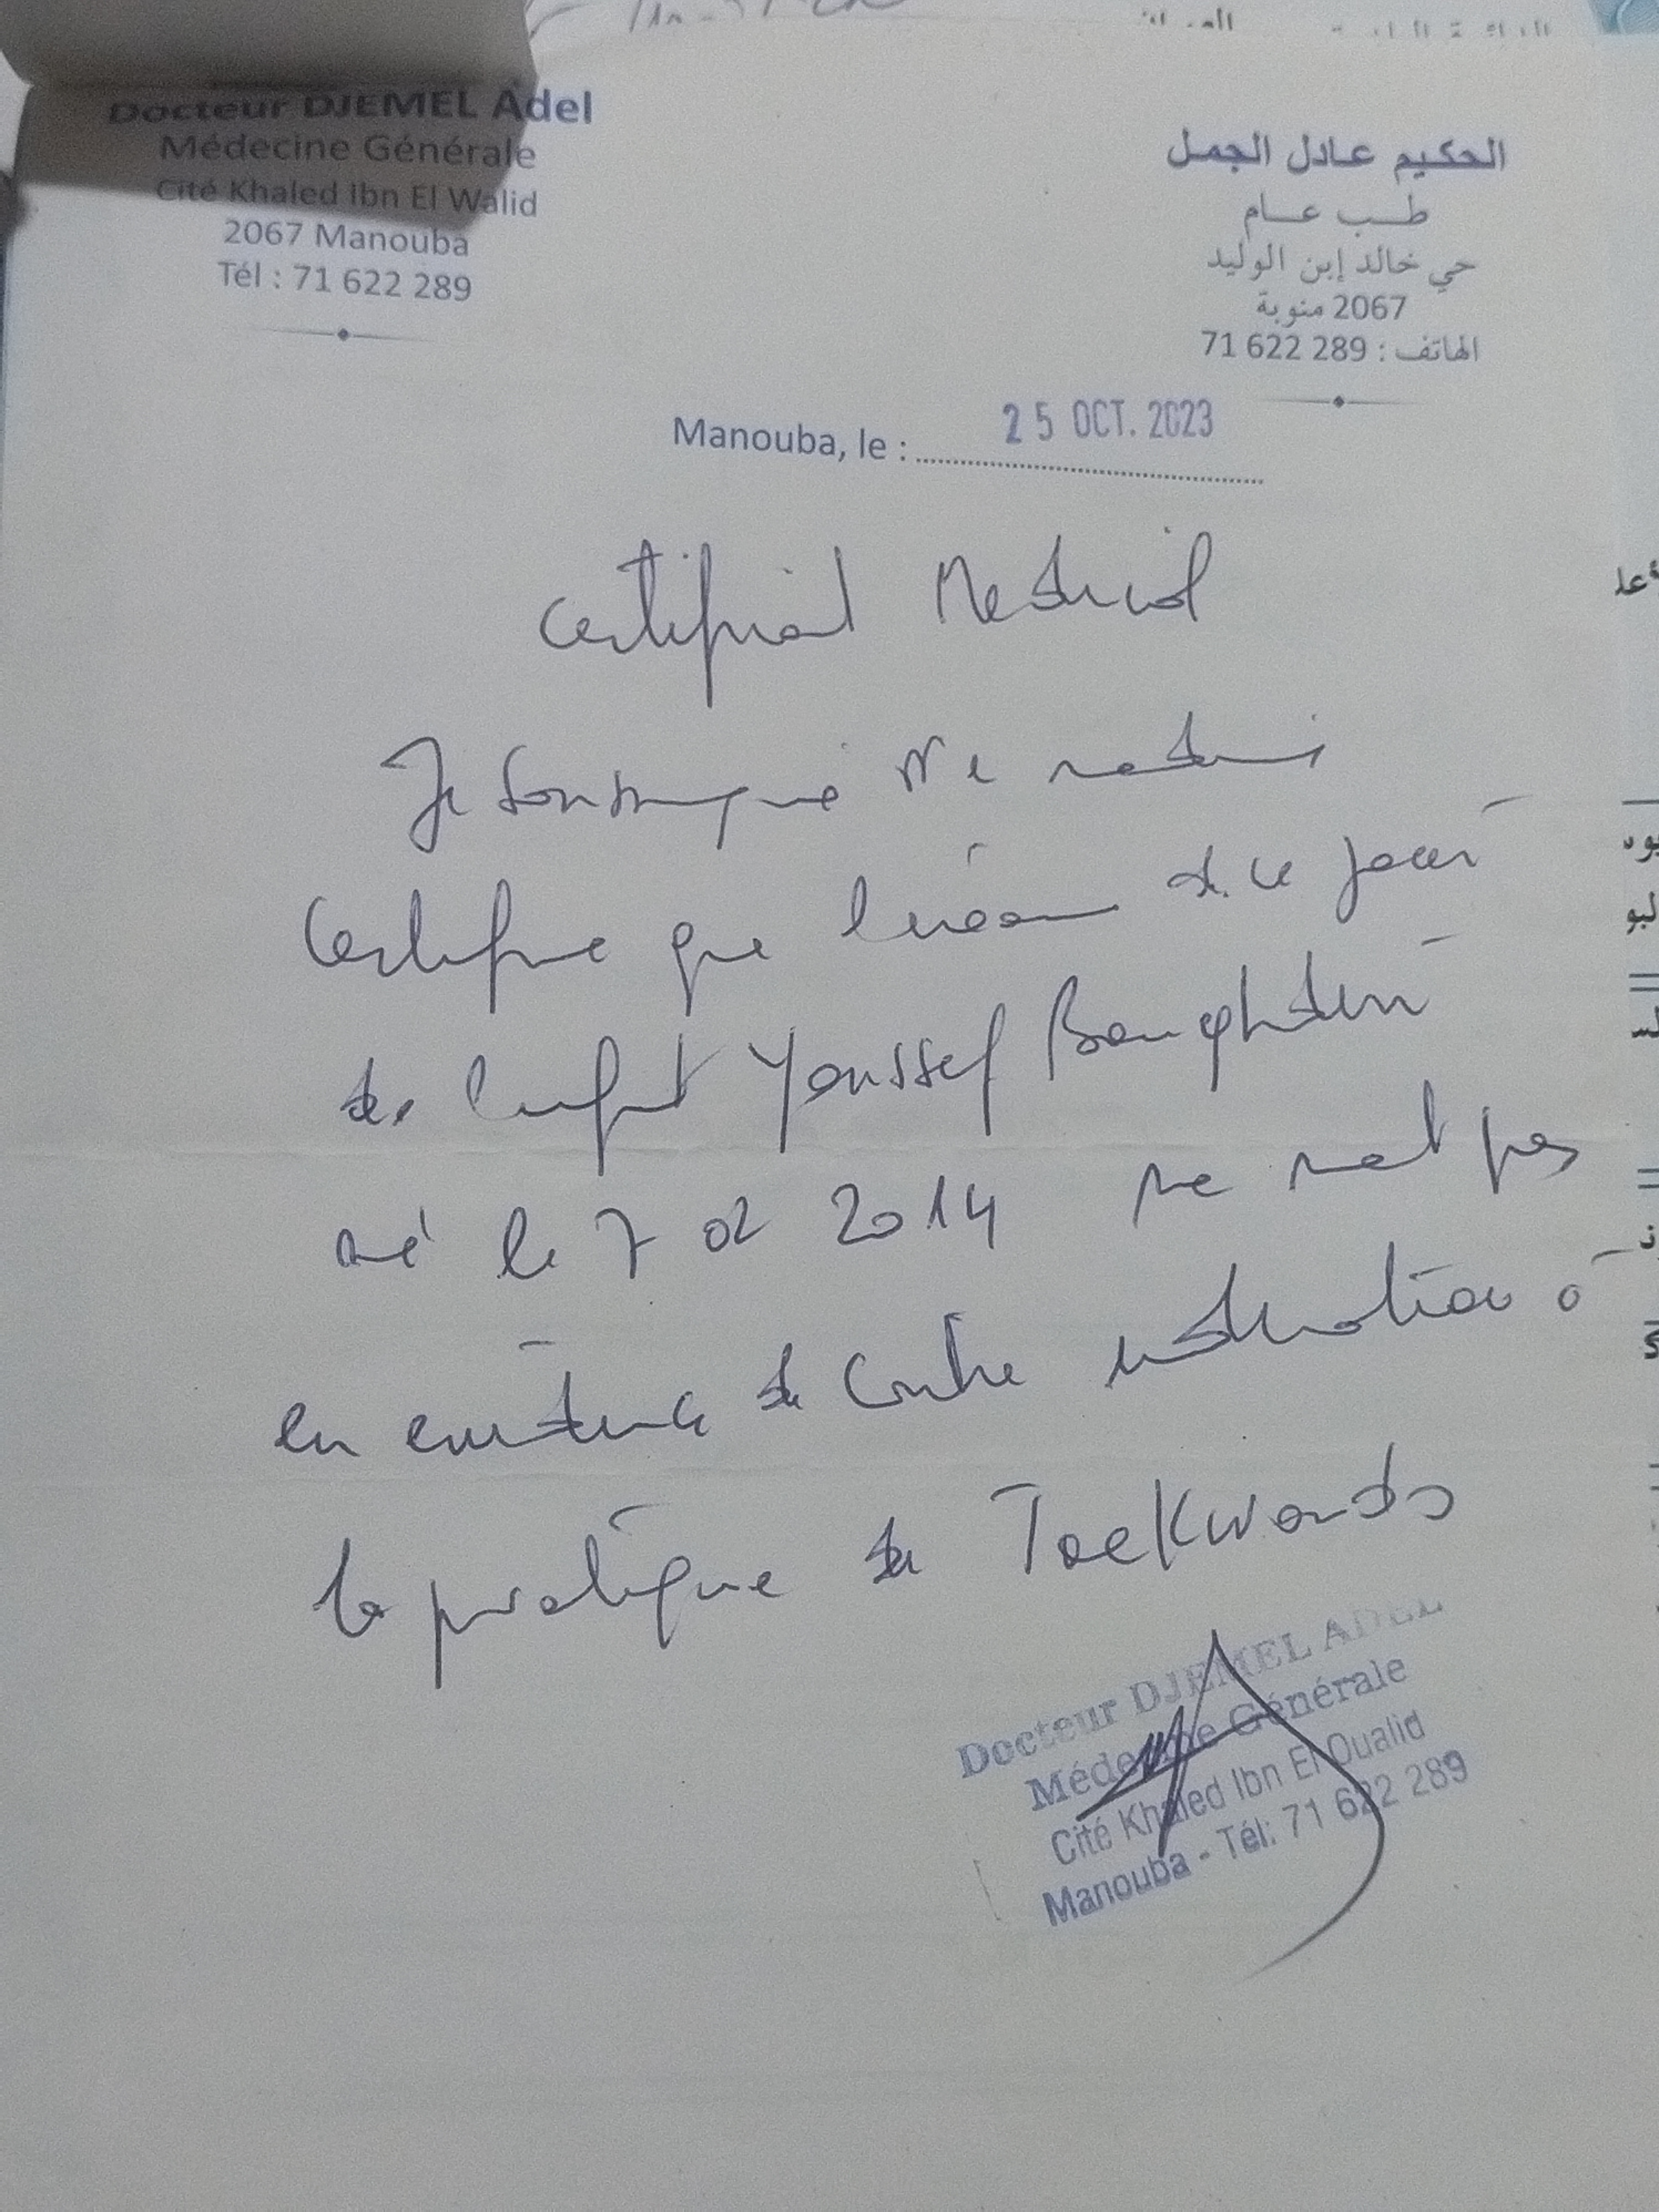 Docteur DJEMEL Adel
Médecine Générale
Cité Khaled Ibn El Walid
2067 Manouba
Tél : 71 622 289
الحكيم عادل الجمل
طب عام
حي خالد إبن الوليد
2067 منوبة
الهاتف : 71 622 289
Manouba, le : 25 OCT. 2023
Certificat Medical
Je soussigné Me
Certifie que l'examen de ce jour
de l'enfant Youssef
né le 7 02 2014 ne met pas
en evidence de contre indication à
la pratique du Taekwondo
Docteur DJEMEL ADEL
Médecine Générale
Cité Khaled Ibn El Oualid
Manouba - Tél: 71 622 289